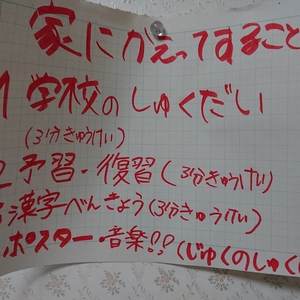 家にかえってすること
1 学校のしゅくだい
(3分きゅうけい)
2 予習・復習(3分きゅうけい)
漢字べんきょう(3分きゅうけい)
ポスター・音楽!!(じゅくのしゅく